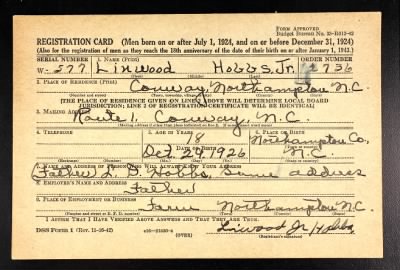 Form Approved
Budget Bureau No. 33-R012-42
REGISTRATION CARD (Men born on or after July 1, 1924, and on or before December 31, 1924)
(Also for the registration of men as they reach the 18th anniversary of the date of their birth on or after January 1, 1943.)
SERIAL NUMBER 1. NAME (Print) ORDER NUMBER
W-577 Linwood Hobbs, Jr. 12736
2. PLACE OF RESIDENCE (Print)
Conway, Northampton N.C.
[THE PLACE OF RESIDENCE GIVEN ON LINE 2 ABOVE WILL DETERMINE LOCAL BOARD
JURISDICTION; LINE 2 OF REGISTRATION CERTIFICATE WILL BE IDENTICAL]
3. MAILING ADDRESS
Route 1. Conway, N.C.
4. TELEPHONE 5. AGE IN YEARS 6. PLACE OF BIRTH
18 Northampton Co.
DATE OF BIRTH
Oct 24 1926 N.C.
7. NAME AND ADDRESS OF PERSON WHO WILL ALWAYS KNOW YOUR ADDRESS
Father L. D. Hobbs, Same address
8. EMPLOYER'S NAME AND ADDRESS
Father
9. PLACE OF EMPLOYMENT OR BUSINESS
Farm Northampton N.C.
(Number and street or R. F. D. number) (Town) (County) (State)
I AFFIRM THAT I HAVE VERIFIED ABOVE ANSWERS AND THAT THEY ARE TRUE.
DSS Form 1 (Rev. 11-16-42) (OVER) Linwood Jr Hobbs